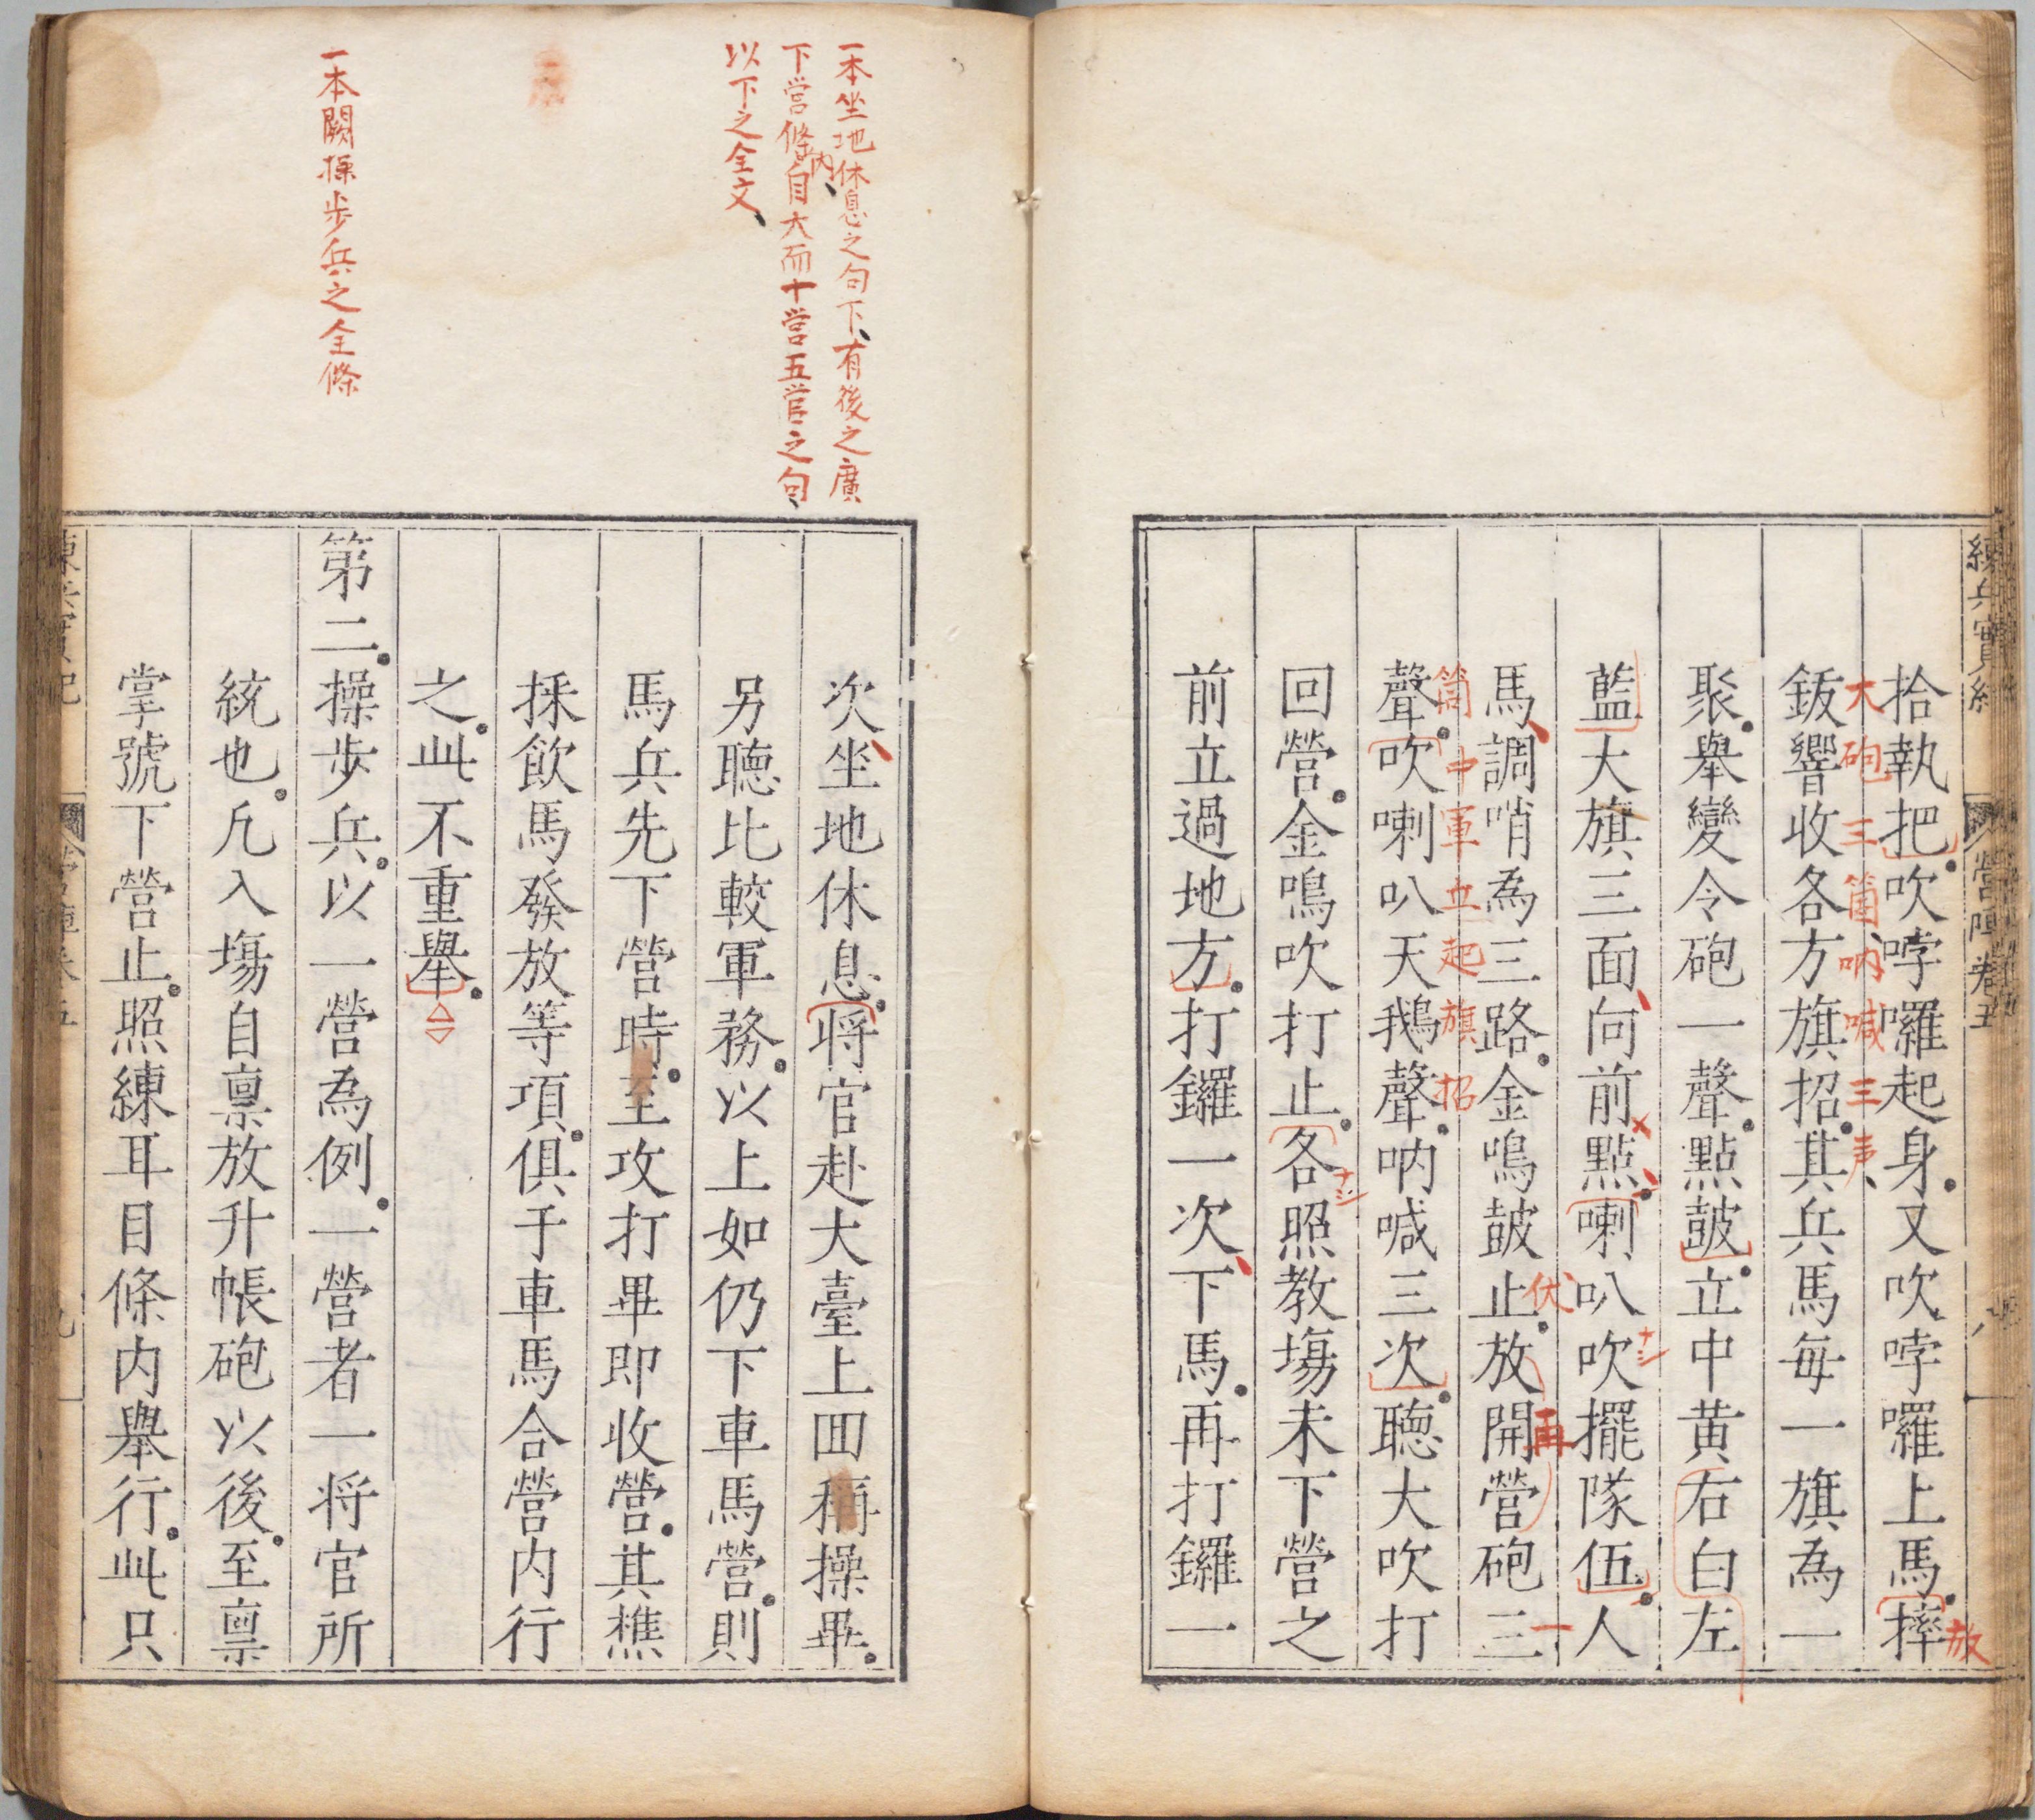 練兵實紀
營陣卷五
拾執把吹哱囉起身又吹哱囉上馬摔
放
大砲三箇吶喊三声
鈸響收各方旗招其兵馬每一旗為一
聚舉變令砲一聲點皷立中黄右白左
藍大旗三面向前點喇叭吹擺隊伍人
ナシ
伏
再
一
馬調哨為三路金鳴皷止放開營砲三
箇中軍立起旗招
聲吹喇叭天鵝聲吶喊三次聽大吹打
回營金鳴吹打止各照教場未下營之
ナシ
前立過地方打鑼一次下馬再打鑼一
一本坐地休息之句下有後之廣
下営條内自大而十営五営之句
以下之全文
一本闕操步兵之全條
次坐地休息将官赴大臺上回稱操畢
另聽比較軍務以上如仍下車馬營則
馬兵先下營時至攻打畢即收營其樵
採飲馬發放等項俱于車馬合營内行
之此不重舉
第二操步兵以一營為例一營者一将官所
統也凡入塲自禀放升帳砲以後至禀
掌號下營止照練耳目條内舉行此只